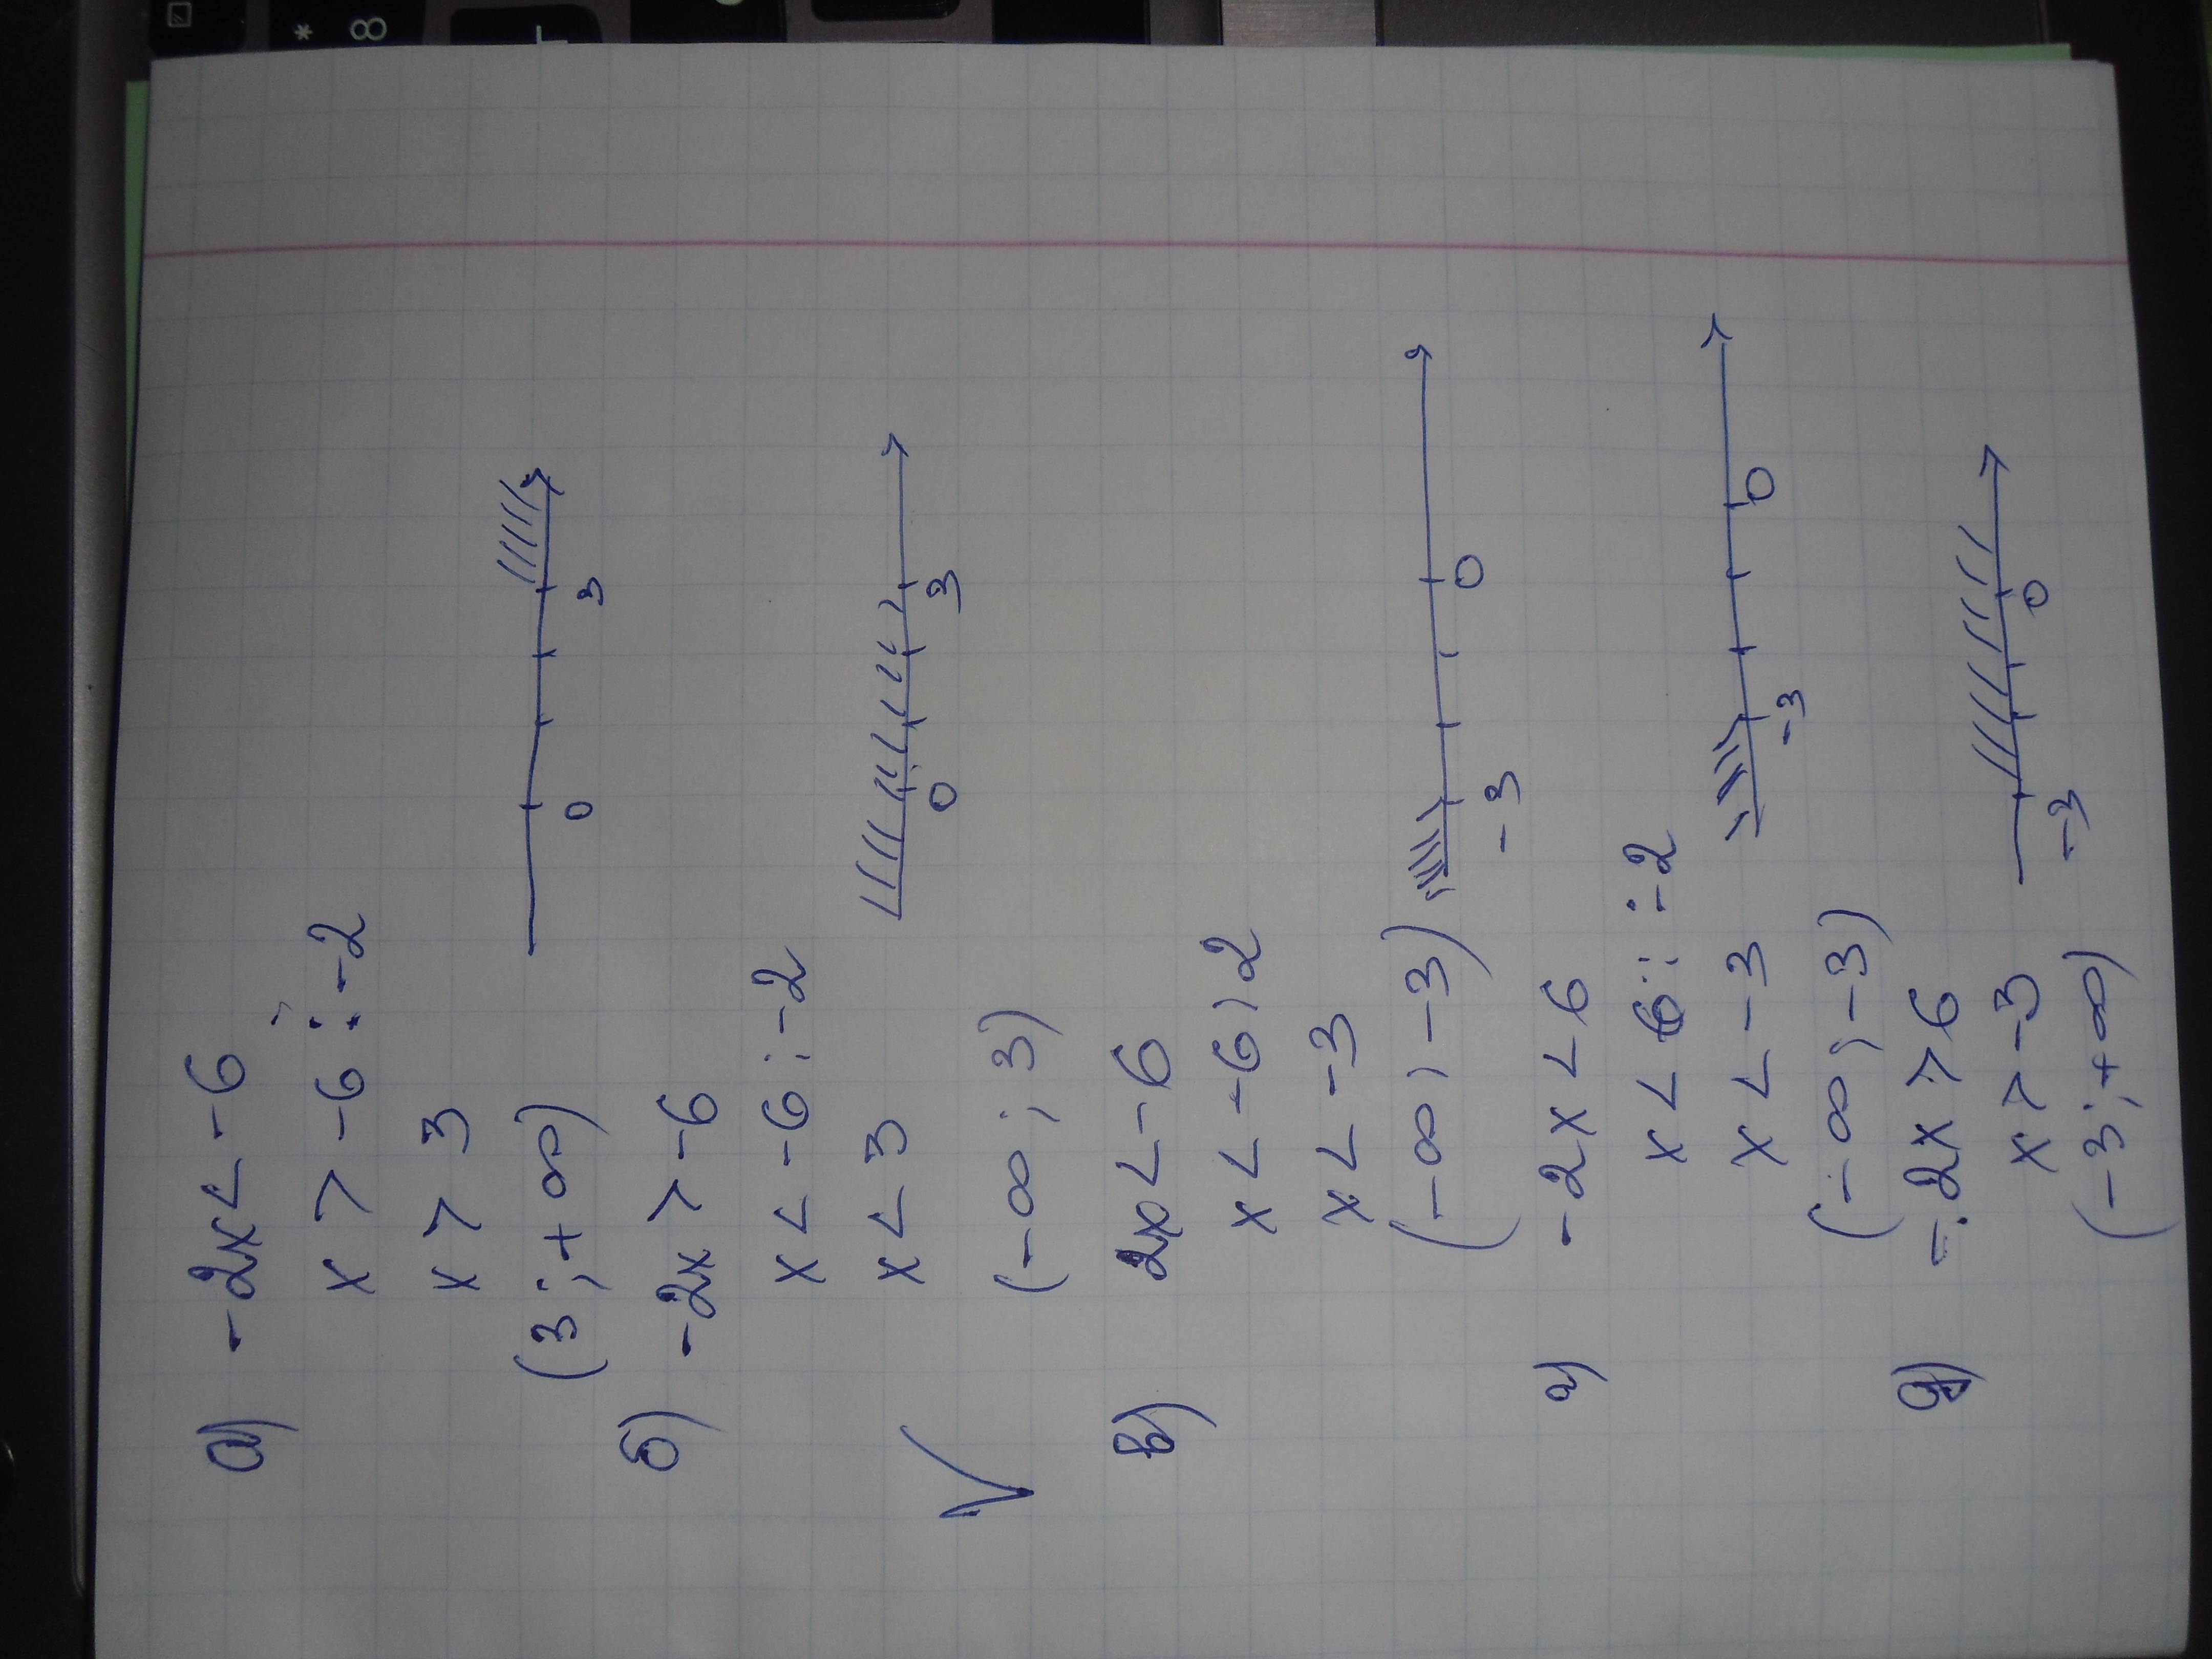 а) -2x < -6
x > -6 : -2
x > 3
(3 ; +∞)
0 3
б) -2x > -6
x < -6 : -2
x < 3
0 3
(-∞ ; 3)
в) 2x < -6
x < -6 ) 2
x < -3
(-∞ ; -3)
-3 0
г) -2x < 6
x < 6 : -2
x < -3
-3 0
(-∞ ; -3)
д) -2x > 6
x > -3
-3 0
(-3 ; +∞)
* 8